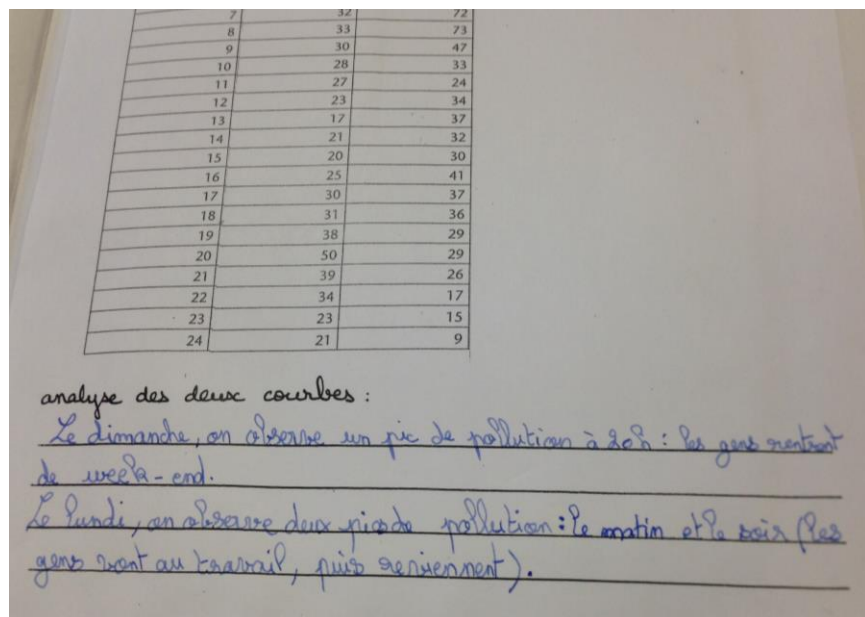 7 32 72
8 33 73
9 30 47
10 28 33
11 27 24
12 23 34
13 17 37
14 21 32
15 20 30
16 25 41
17 30 37
18 31 36
19 38 29
20 50 29
21 39 26
22 34 17
23 23 15
24 21 9
analyse des deux courbes :
Le dimanche, on observe un pic de pollution à 20h : les gens rentrent
de week-end.
Le lundi, on observe deux pics de pollution : le matin et le soir (les
gens vont au travail, puis reviennent).